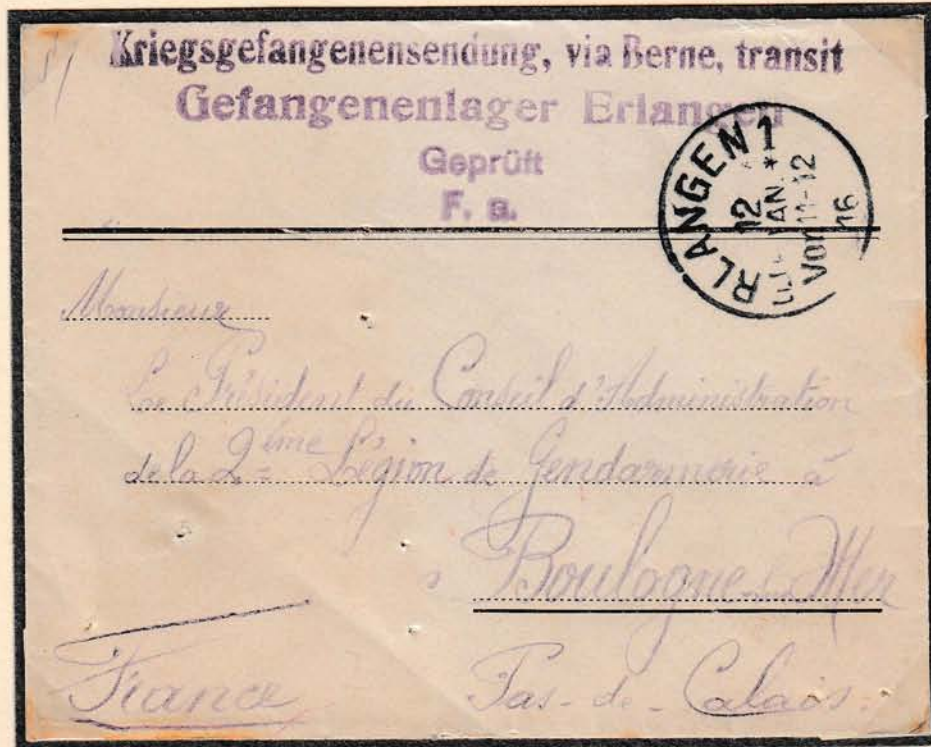 Kriegsgefangenensendung, via Berne, transit
Gefangenenlager Erlangen
Geprüft
F. a.
RLANGEN 1
12
JAN. *
Vor 11-12
16
Monsieur
Le Président du Conseil d'Administration
de la 2ème Légion de Gendarmerie à
Boulogne sur Mer
France
Pas-de-Calais